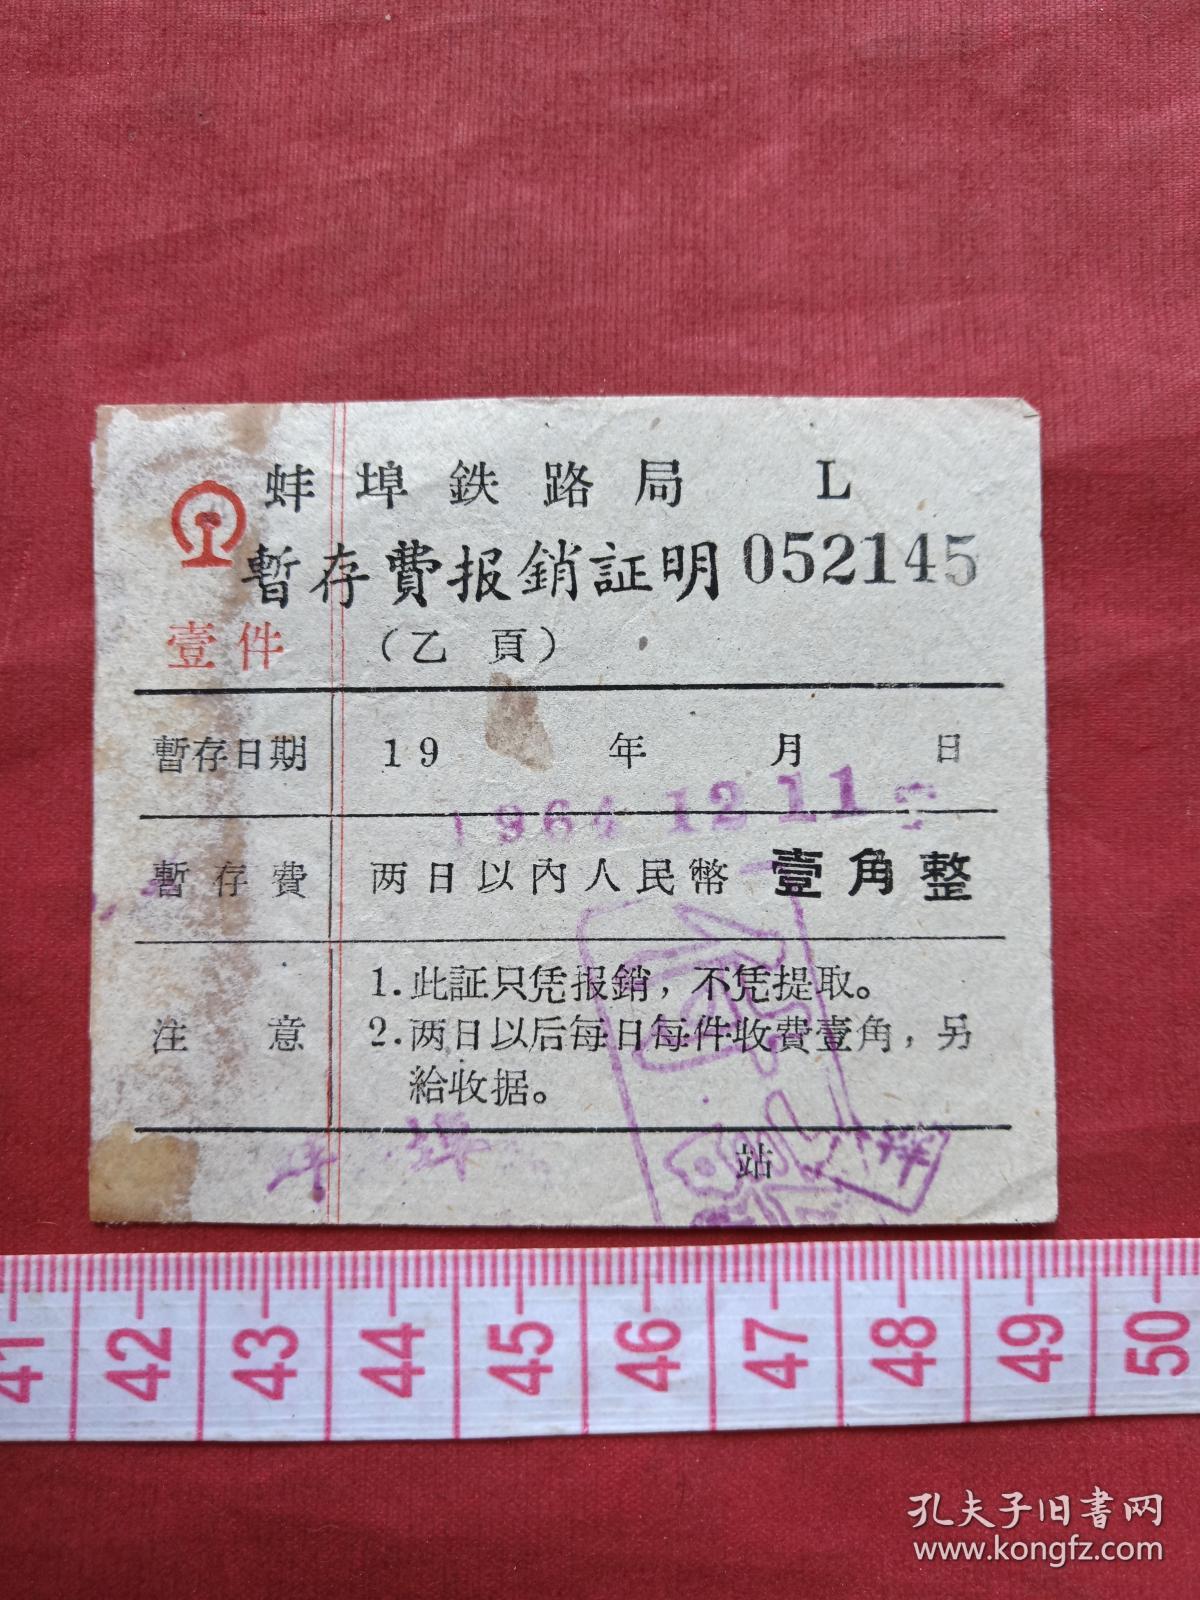 蚌埠鉄路局 L
暫存費报銷証明 052145
壹件 （乙頁）
暫存日期 19 年 月 日
1964 12 11
暫存費 两日以內人民幣 壹角整
注意 1.此証只凭报銷，不凭提取。
2.两日以后每日每件收費壹角，另
給收据。
站
41 42 43 44 45 46 47 48 49 50
孔夫子旧书网
www.kongfz.com